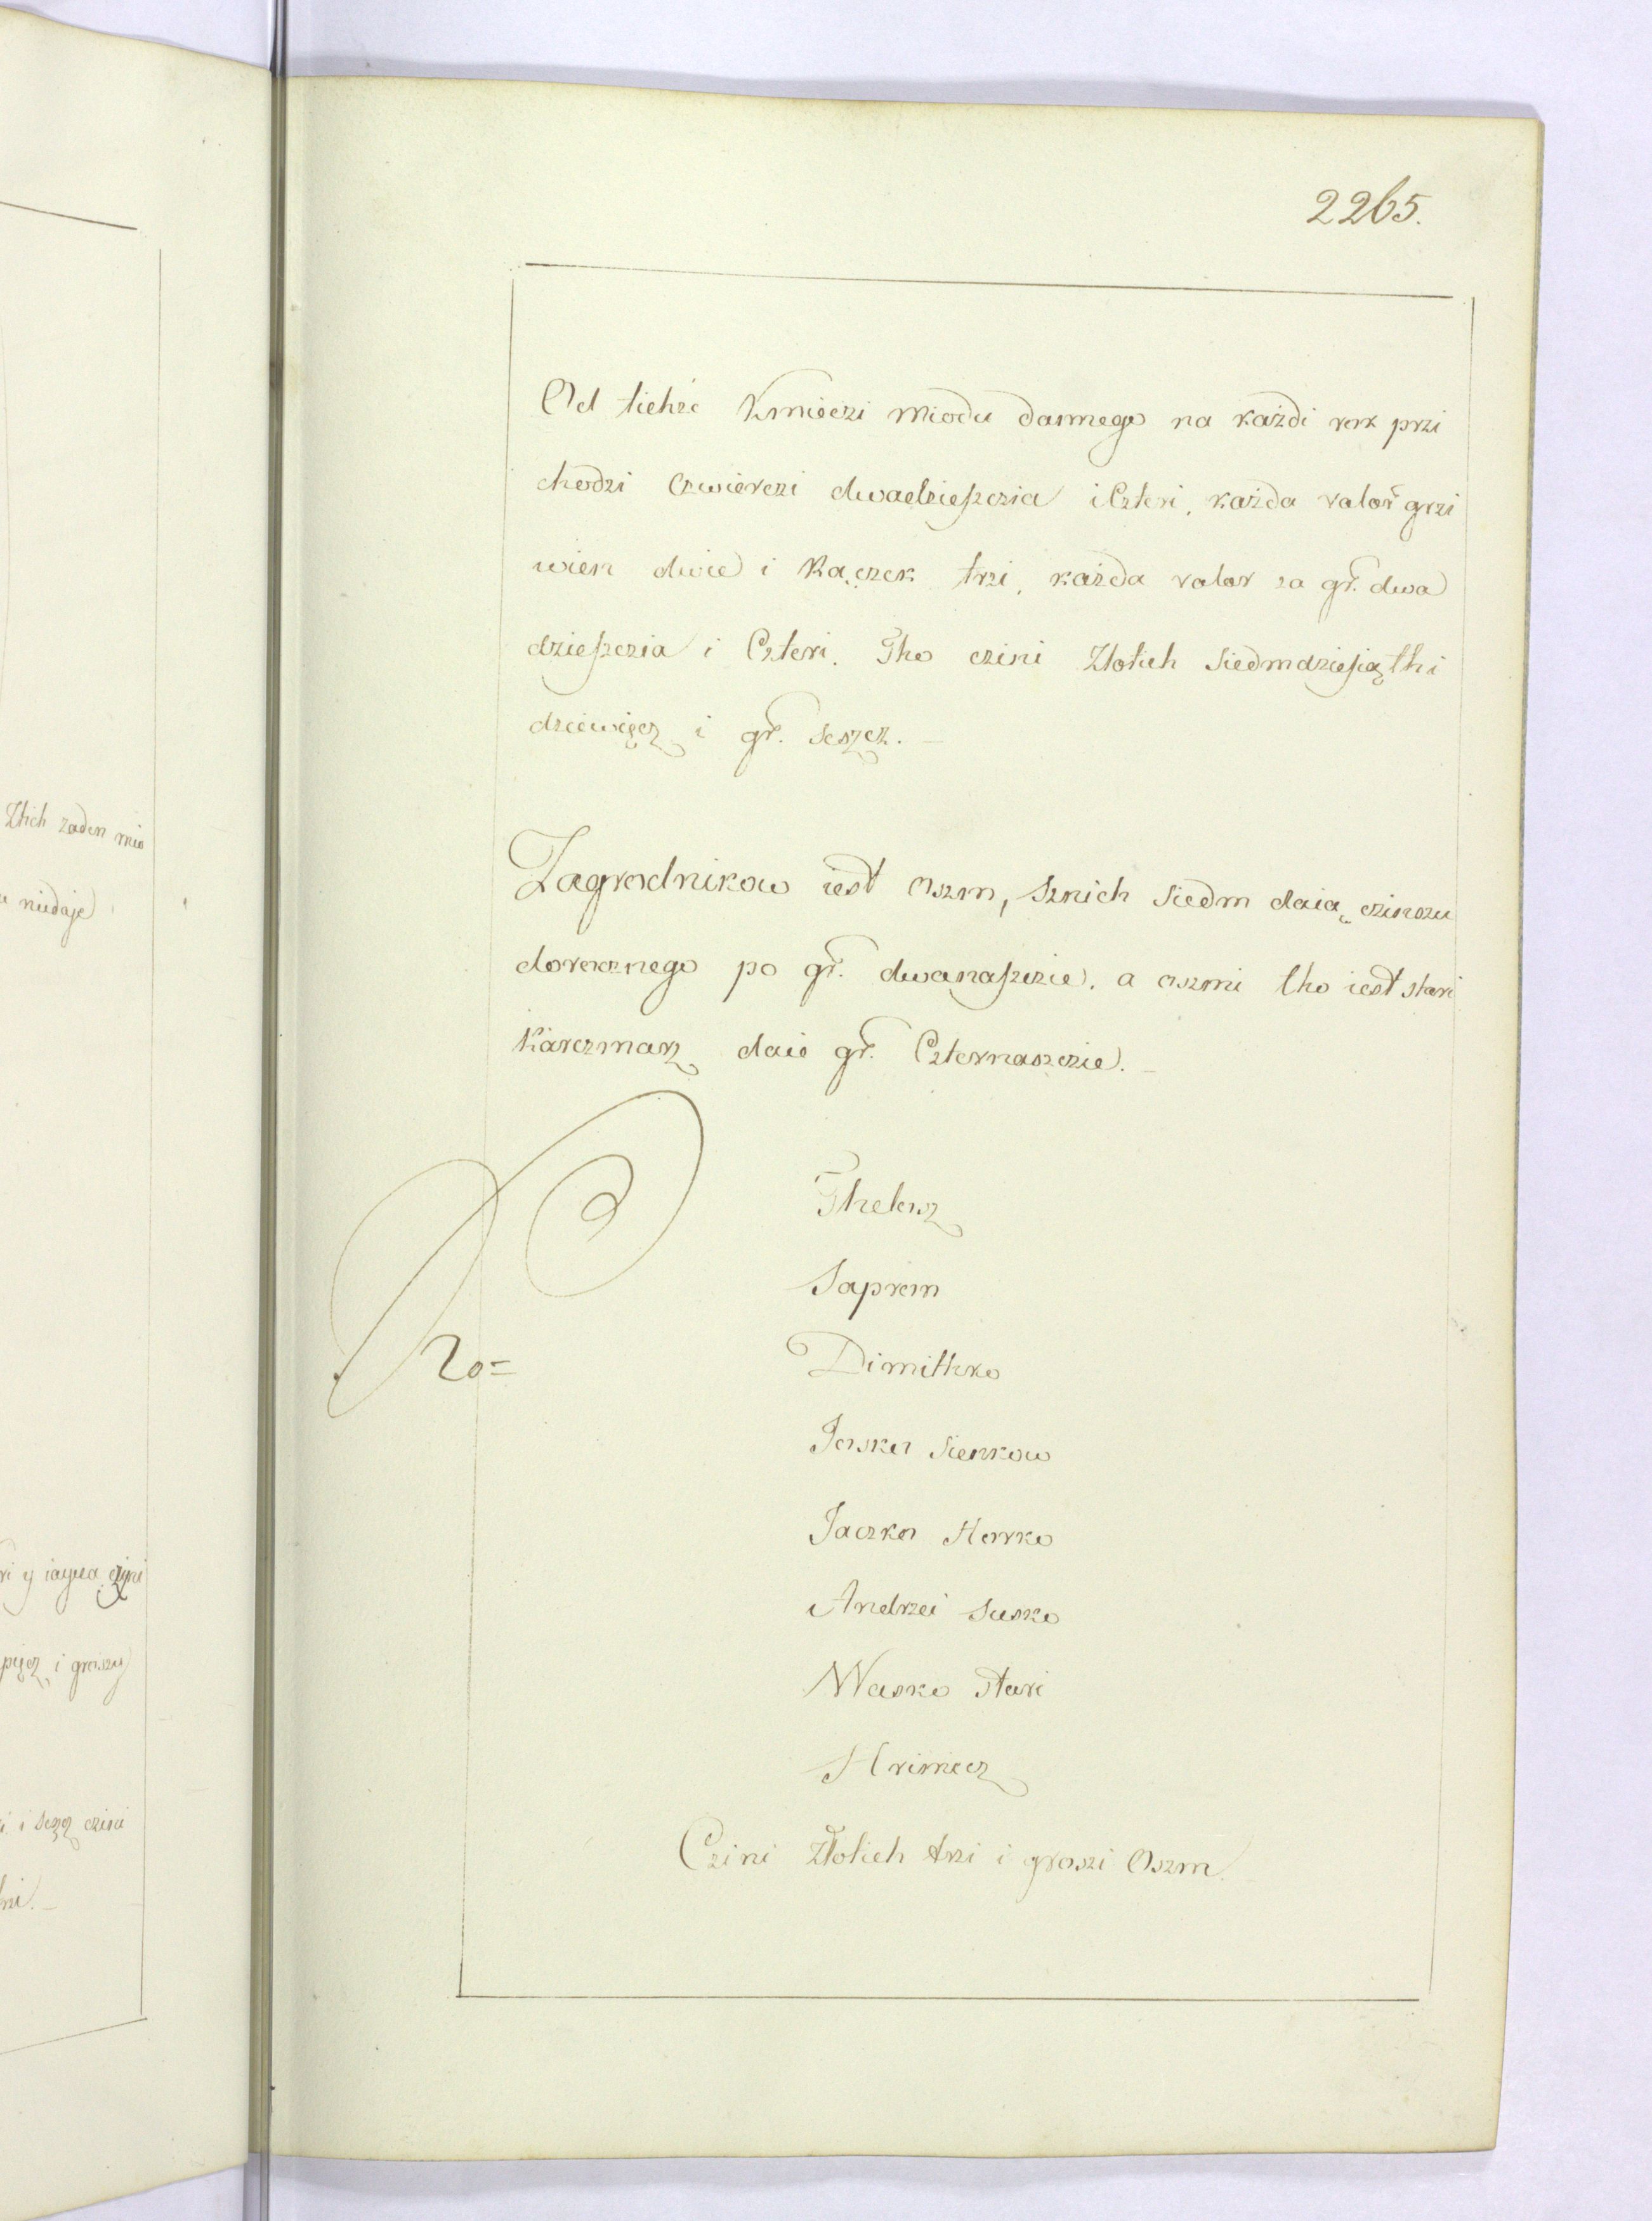 Złich zaden mio
niedaje
ri y iaycza czyni
pięcz i groszy
i sescz czini
2265.
Od tichże Kmieczi miodu dannego na każdi rok przi
chodzi czwierczi dwadzieſzczia i Czteri, każda valor grzi
wien dwie i Kączek trzi, każda valor za gr. dwa
dzieſzczia i Czteri. Tho czini Złotich Siedmdzieſiąthi
dziewięcz i gr. seszcz. –
Zagrodnikow iest oszm, sznich Siedm daią czinszu
dorocznego po gr. dwanaſzczie, a oszmi tho iest stari
Karczmarz daie gr. Czternaszczie. –
Thelusz
Saprem
Dimithko
Jaska Sienkow
Jaczko Horko
Andrzei Susko
Wasko Stari
Hrimecz
Czini Złotich trzi i groszi Oszm.